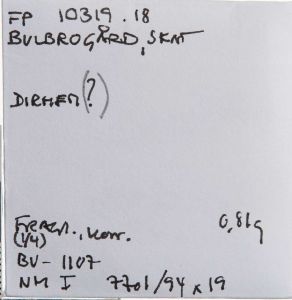 FP 10319.18
BULBROGÅRD, SKAT
DIRHEM (?)
FRAGM., korr. 0,81g
(1/4)
BU- 1107
NM I 7701/94 x 19